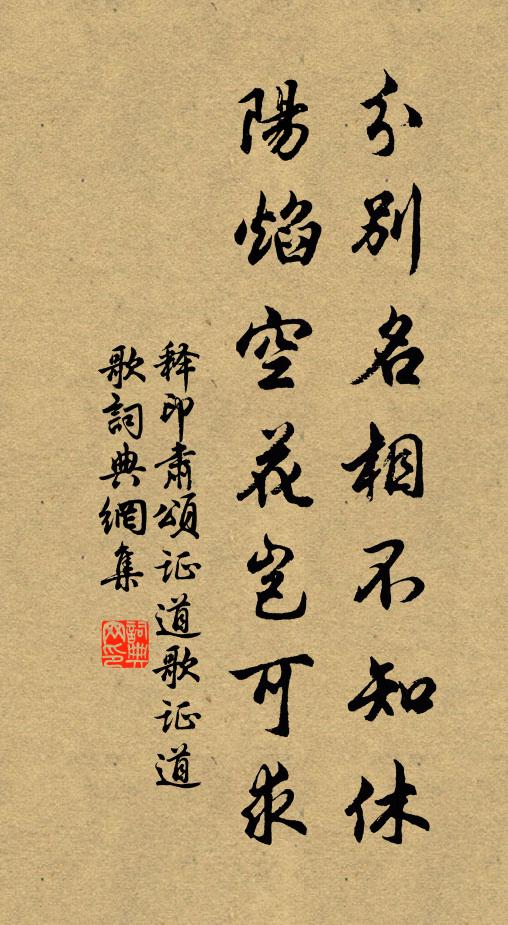 分別名相不知休
陽焰空花豈可求
释印肅頌证道歌证道
歌詞典網集
詞典
网印